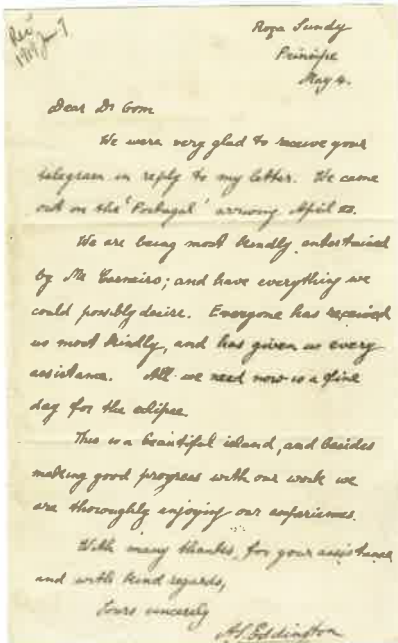 Rec
1919 June 7
Roça Sundy
Principe
May 4.
Dear Dr
We were very glad to receive your
telegram in reply to my letter. We came
out on the 'Portugal' arriving April
We are being most kindly entertained
by Mr Carneiro; and have everything we
could possibly desire. Everyone has received
us most kindly, and has given us every
assistance. All we need now is a fine
day for the eclipse.
This is a beautiful island, and besides
making good progress with our work we
are thoroughly enjoying our experiences.
With many thanks, for your assistance
and with kind regards,
Yours sincerely
A S Eddington